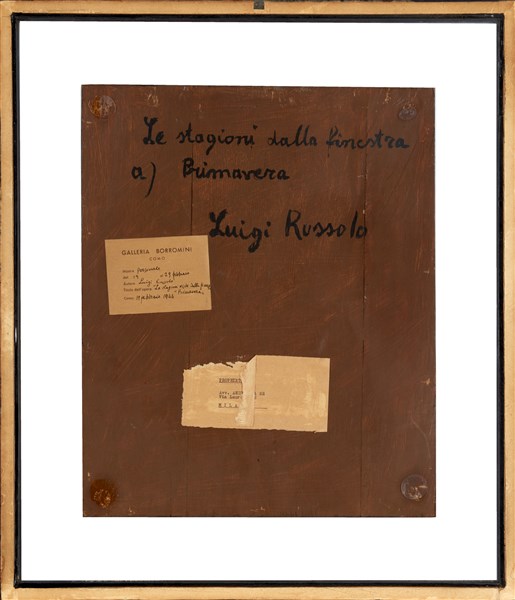 Le stagioni dalla finestra
a) Primavera
Luigi Russolo
GALLERIA BORROMINI
COMO
Mostra personale
dal 19 al 29 febbraio
Autore Luigi Russolo
Titolo dell'opera Le stagioni
"Primavera"
Como, febbraio 1944
Avv.
Via
MILA